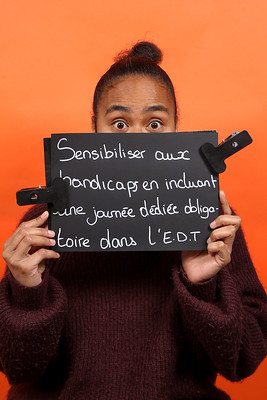 Sensibiliser aux
handicaps en incluant
une journée dédiée obliga-
toire dans l'E.D.T